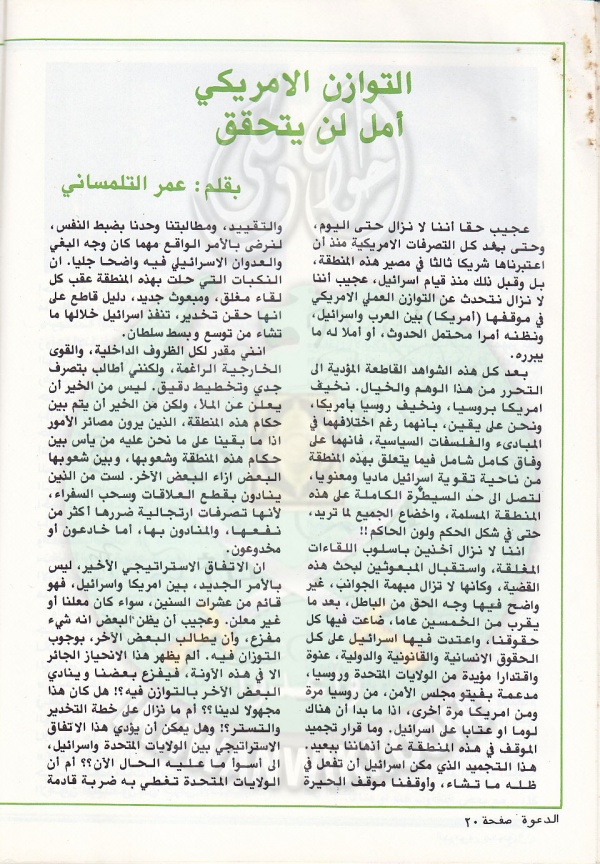 التوازن الامريكي
أمل لن يتحقق
بقلم: عمر التلمساني
عجيب حقا أننا لا نزال حتى اليوم،
وحتى بعد كل التصرفات الامريكية منذ أن
اعتبرناها شريكا ثالثا في مصير هذه المنطقة،
بل وقبل ذلك منذ قيام اسرائيل، عجيب أننا
لا نزال نتحدث عن التوازن العملي الامريكي
في موقفها (أمريكا) بين العرب واسرائيل،
ونظنه أمرا محتمل الحدوث، أو أملا له ما
يبرره.
بعد كل هذه الشواهد القاطعة المؤدية الى
التحرر من هذا الوهم والخيال. نخيف
امريكا بروسيا، ونخيف روسيا بأمريكا،
ونحن على يقين، بانهما رغم اختلافهما في
المبادىء والفلسفات السياسية، فانهما على
وفاق كامل شامل فيما يتعلق بهذه المنطقة
من ناحية تقوية اسرائيل ماديا ومعنويا،
لتصل الى حد السيطرة الكاملة على هذه
المنطقة المسلمة، واخضاع الجميع لما تريد،
حتى في شكل الحكم ولون الحاكم!!
اننا لا نزال آخذين باسلوب اللقاءات
المغلقة، واستقبال المبعوثين لبحث هذه
القضية، وكانها لا تزال مبهمة الجوانب، غير
واضح فيها وجه الحق من الباطل، بعد ما
يقرب من الخمسين عاما، ضاعت فيها كل
حقوقنا، واعتدت فيها اسرائيل على كل
الحقوق الانسانية والقانونية والدولية، عنوة
واقتدارا مؤيدة من الولايات المتحدة وروسيا،
مدعمة بفيتو مجلس الأمن، من روسيا مرة
ومن امريكا مرة أخرى، اذا ما بدا أن هناك
لوما او عتابا على اسرائيل. وما قرار تجميد
الموقف في هذه المنطقة عن أذهاننا ببعيد.
هذا التجميد الذي مكن اسرائيل أن تفعل في
ظله ما تشاء، وأوقفنا موقف الحيرة
والتقييد، ومطالبتنا وحدنا بضبط النفس،
لنرضى بالأمر الواقع مهما كان وجه البغي
والعدوان الاسرائيلي فيه واضحا جليا. ان
النكبات التي حلت بهذه المنطقة عقب كل
لقاء مغلق، ومبعوث جديد، دليل قاطع على
انها حقن تخدير، تنفذ اسرائيل خلالها ما
تشاء من توسع وبسط سلطان.
انني مقدر لكل الظروف الداخلية، والقوى
الخارجية الراغمة، ولكنني أطالب بتصرف
جدي وتخطيط دقيق. ليس من الخير أن
يعلن عن الملأ، ولكن من الخير أن يتم بين
حكام هذه المنطقة، الذين يرون مصائر الأمور
اذا ما بقينا على ما نحن عليه من يأس بين
حكام هذه المنطقة وشعوبها، وبين شعوبها
البعض ازاء البعض الآخر. لست من الذين
ينادون بقطع العلاقات وسحب السفراء،
لأنها تصرفات ارتجالية ضررها أكثر من
نفعها، والمنادون بها، أما خادعون أو
مخدوعون.
ان الاتفاق الاستراتيجي الأخير، ليس
بالأمر الجديد، بين امريكا واسرائيل، فهو
قائم من عشرات السنين، سواء كان معلنا أو
غير معلن. وعجيب أن يظن البعض انه شيء
مفزع، وأن يطالب البعض الآخر، بوجوب
التوزان فيه. ألم يظهر هذا الانحياز الجائر
الا في هذه الآونة، فيفزع بعضنا وينادي
البعض الآخر بالتوازن فيه؟! هل كان هذا
مجهولا لدينا؟؟ أم ما نزال على خطة التخدير
والتستر؟! وهل يمكن أن يؤدي هذا الاتفاق
الاستراتيجي بين الولايات المتحدة واسرائيل،
الى أسوأ ما عليه الحال الآن؟؟ أم أن
الولايات المتحدة تغطي به ضربة قادمة
الدعوة صفحة ٢٠